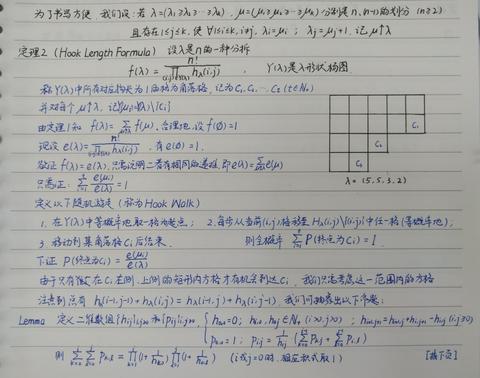 为了书写方便，我们设：若 λ=(λ₁≥λ₂≥…≥λₖ)，μ=(μ₁≥μ₂≥…≥μₖ) 分别是 n, n-1 的划分 (n≥2)
且存在 1≤j≤k, 使 ∀1≤i≤k, i≠j, λᵢ=μᵢ ; λⱼ=μⱼ+1. 记 μ↑λ
定理2 (Hook Length Formula) 设λ是n的一种分拆
f(λ) = n! / ∏_{(i,j)∈Y(λ)} h_λ(i,j) , Y(λ)是λ形状杨图.
称Y(λ)中所有对应钩长为1的格为角落格, 记为 C₁, C₂, … Cₜ (t∈N₊)
并对每个 μᵢ↑λ, 记 Y(μᵢ)=Y(λ)\{Cᵢ}
由定理1知 f(λ)=∑_{μ↑λ} f(μ), 合理地, 设 f(∅)=1
现设 e(λ) = n! / ∏_{(i,j)∈Y(λ)} h_λ(i,j) , 有 e(∅)=1.
欲证 f(λ)=e(λ), 只需说明二者有相同的递推, 即 e(λ)=∑_{μ↑λ} e(μ)
只需证: ∑_{i=1}^{t} e(μᵢ)/e(λ) = 1
C₁
C₂
C₃
λ = (5,5,3,2)
定义以下随机游走 (称为 Hook Walk)
1. 在Y(λ)中等概率地取一格为起点; 2. 每步从当前(i,j)格移至 H_λ(i,j)\{(i,j)} 中任一格(等概率地);
3. 移动到某角落格Cᵢ后结束. 则全概率 ∑_{i=1}^{t} P(终点为Cᵢ)=1.
下证 P(终点为Cᵢ) = e(μᵢ)/e(λ)
由于只有位于Cᵢ左侧、上侧的矩形内方格才有机会到达Cᵢ, 我们只需考虑这一范围内的方格
注意到总有 h_λ(i-1,j-1)+h_λ(i,j) = h_λ(i-1,j)+h_λ(i,j-1). 我们可抽象出以下命题:
Lemma 定义二维数组 {hᵢⱼ}ᵢ,ⱼ≥₀ 和 {pᵢⱼ}ᵢ,ⱼ≥₀, { h₀,₀=0; hᵢ,₀, h₀,ⱼ∈N₊ (i>0, j>0) ; hᵢ₊₁,ⱼ₊₁=hᵢ₊₁,ⱼ+hᵢ,ⱼ₊₁-hᵢ,ⱼ (i,j≥0)
p₀,₀=1 ; pᵢ,ⱼ = 1/hᵢⱼ (∑_{k=0}^{i-1} pₖ,ⱼ + ∑_{k=0}^{j-1} pᵢ,ₖ)
则 ∑_{k=0}^{i} ∑_{s=0}^{j} pₖ,ₛ = ∏_{k=1}^{i} (1+1/hₖ,₀) ∏_{s=1}^{j} (1+1/h₀,ₛ) (i或j=0时, 相应积式取1) [接下页]